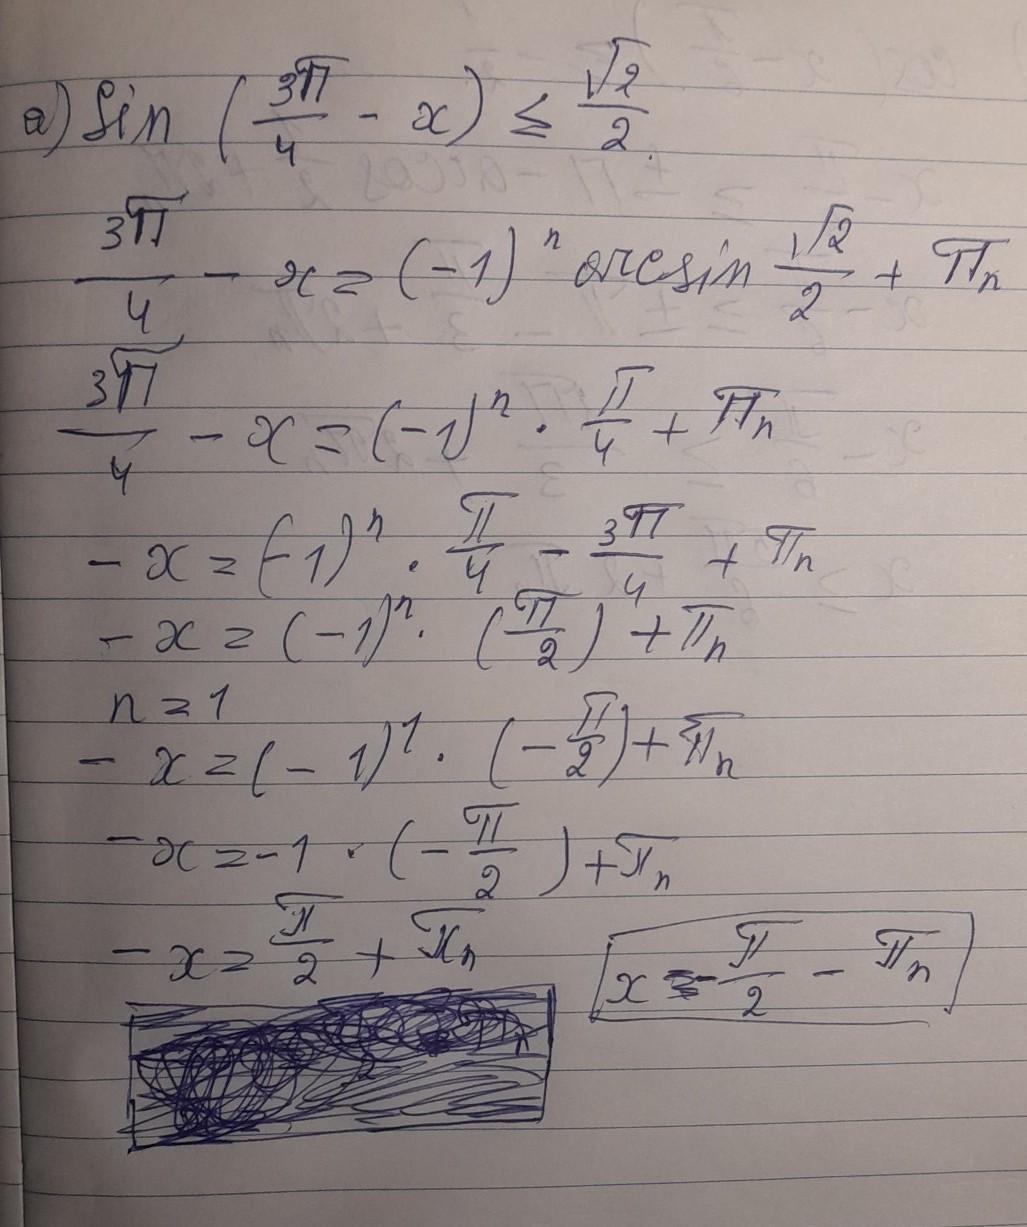 a) Sin (3π/4 - x) ≤ √2/2.
3π/4 - x = (-1)ⁿ arcsin √2/2 + πn
3π/4 - x = (-1)ⁿ · π/4 + πn
- x = (-1)ⁿ · π/4 - 3π/4 + πn
- x = (-1)ⁿ · (π/2) + πn
n = 1
- x = (-1)¹ · (-π/2) + πn
- x = -1 · (-π/2) + πn
- x = π/2 + πn
x = -π/2 - πn